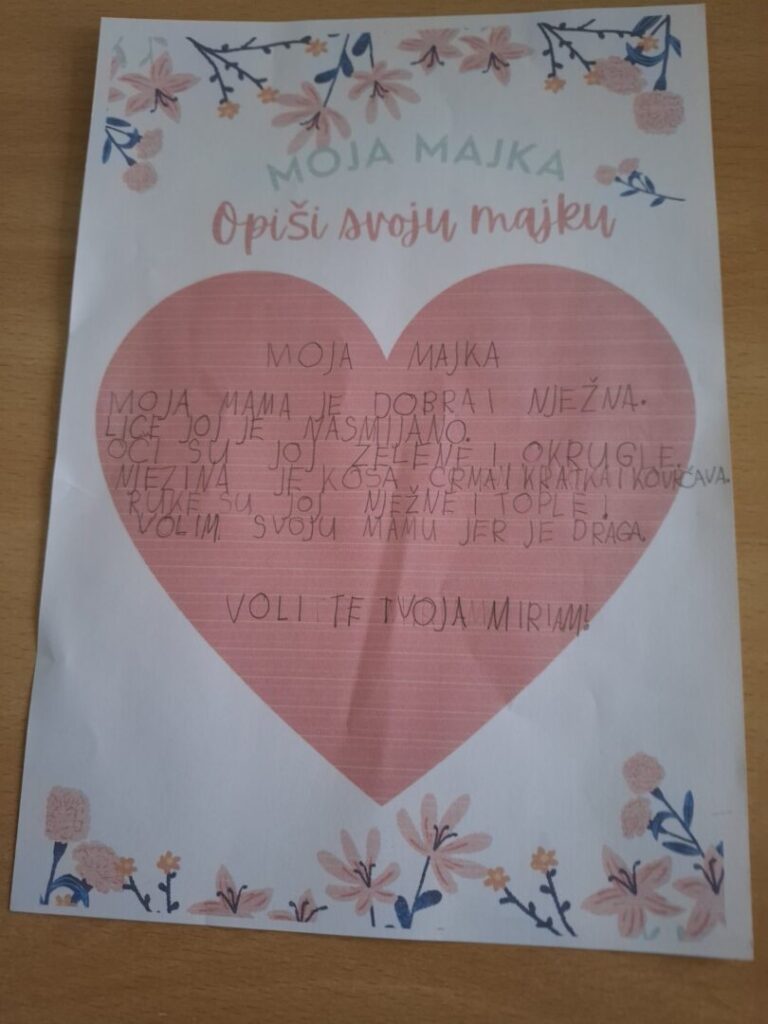 MOJA MAJKA
Opiši svoju majku
MOJA MAJKA
MOJA MAMA JE DOBRA I NJEŽNA.
LICE JOJ JE NASMIJANO.
OČI SU JOJ ZELENE I OKRUGLE.
NJEZINA JE KOSA CRMA I KRATKA I KOVRČAVA.
RUKE SU JOJ NJEŽNE I TOPLE!
VOLIM SVOJU MAMU JER JE DRAGA.
VOLI TE TVOJA MIRIAM!